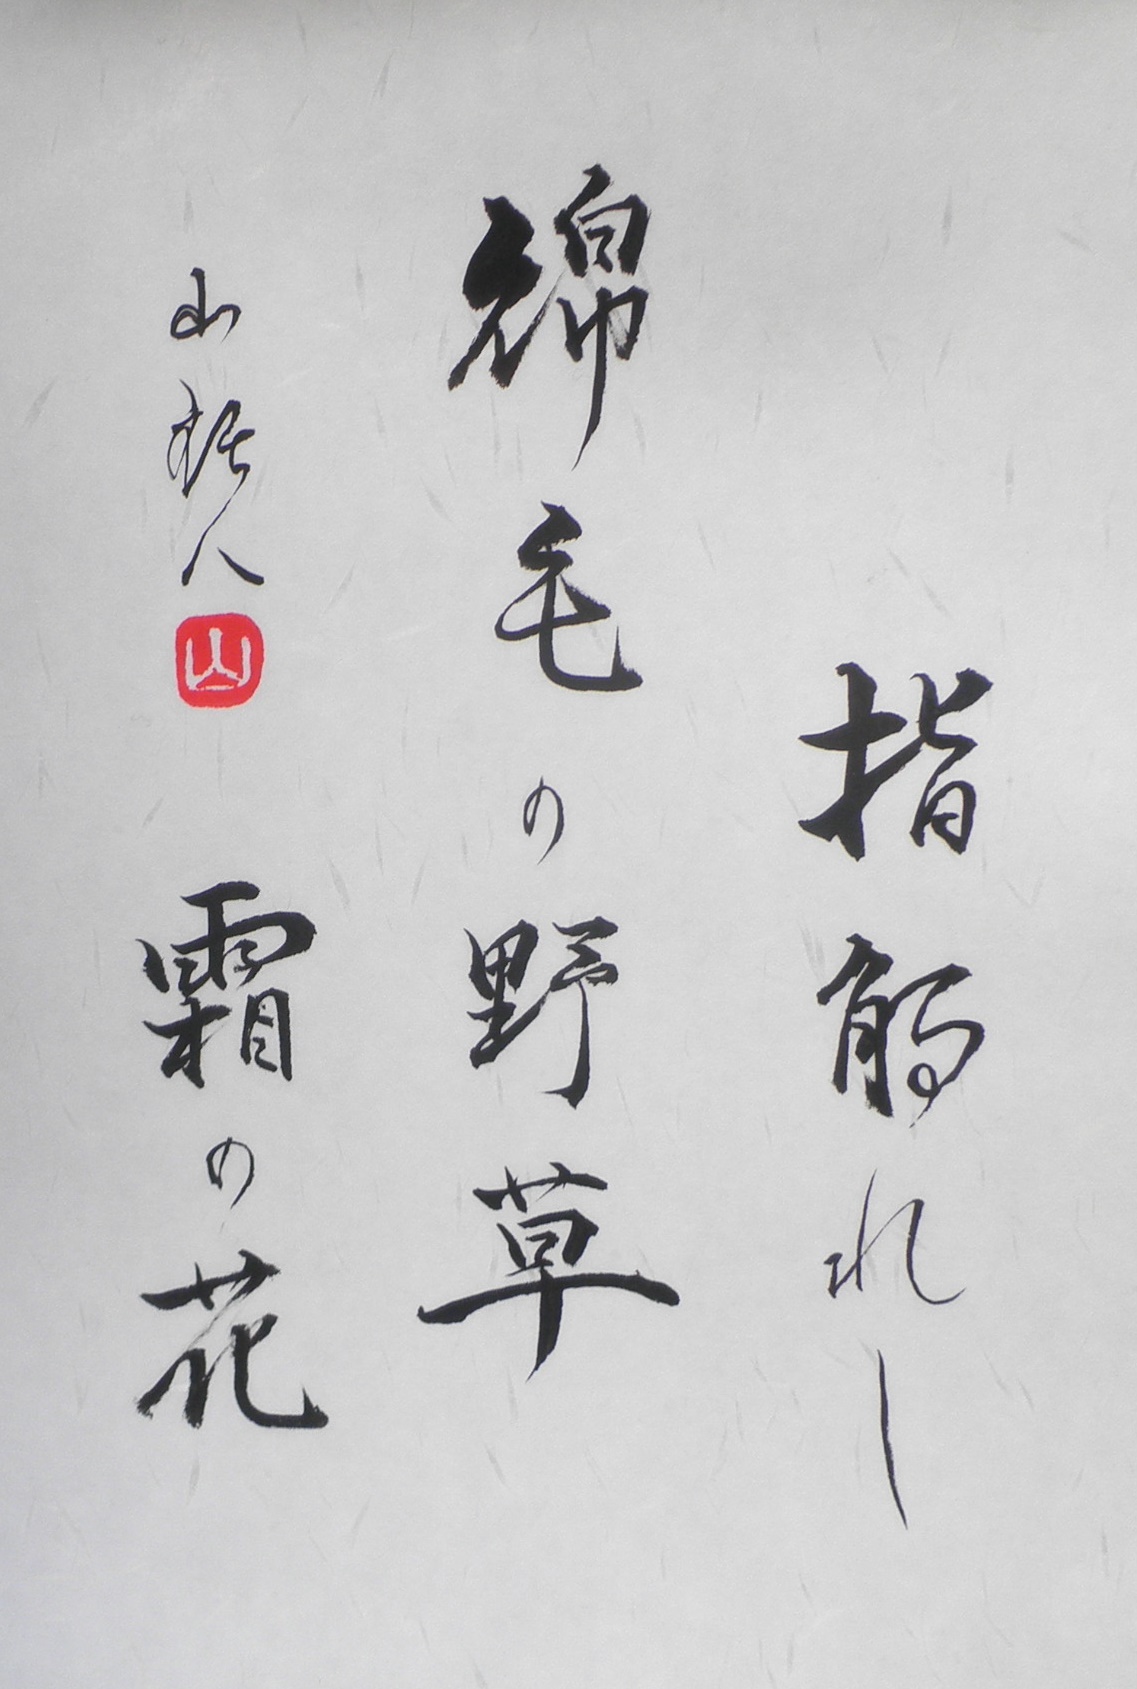 指触れし
綿毛の野草
霜の花
山人
山